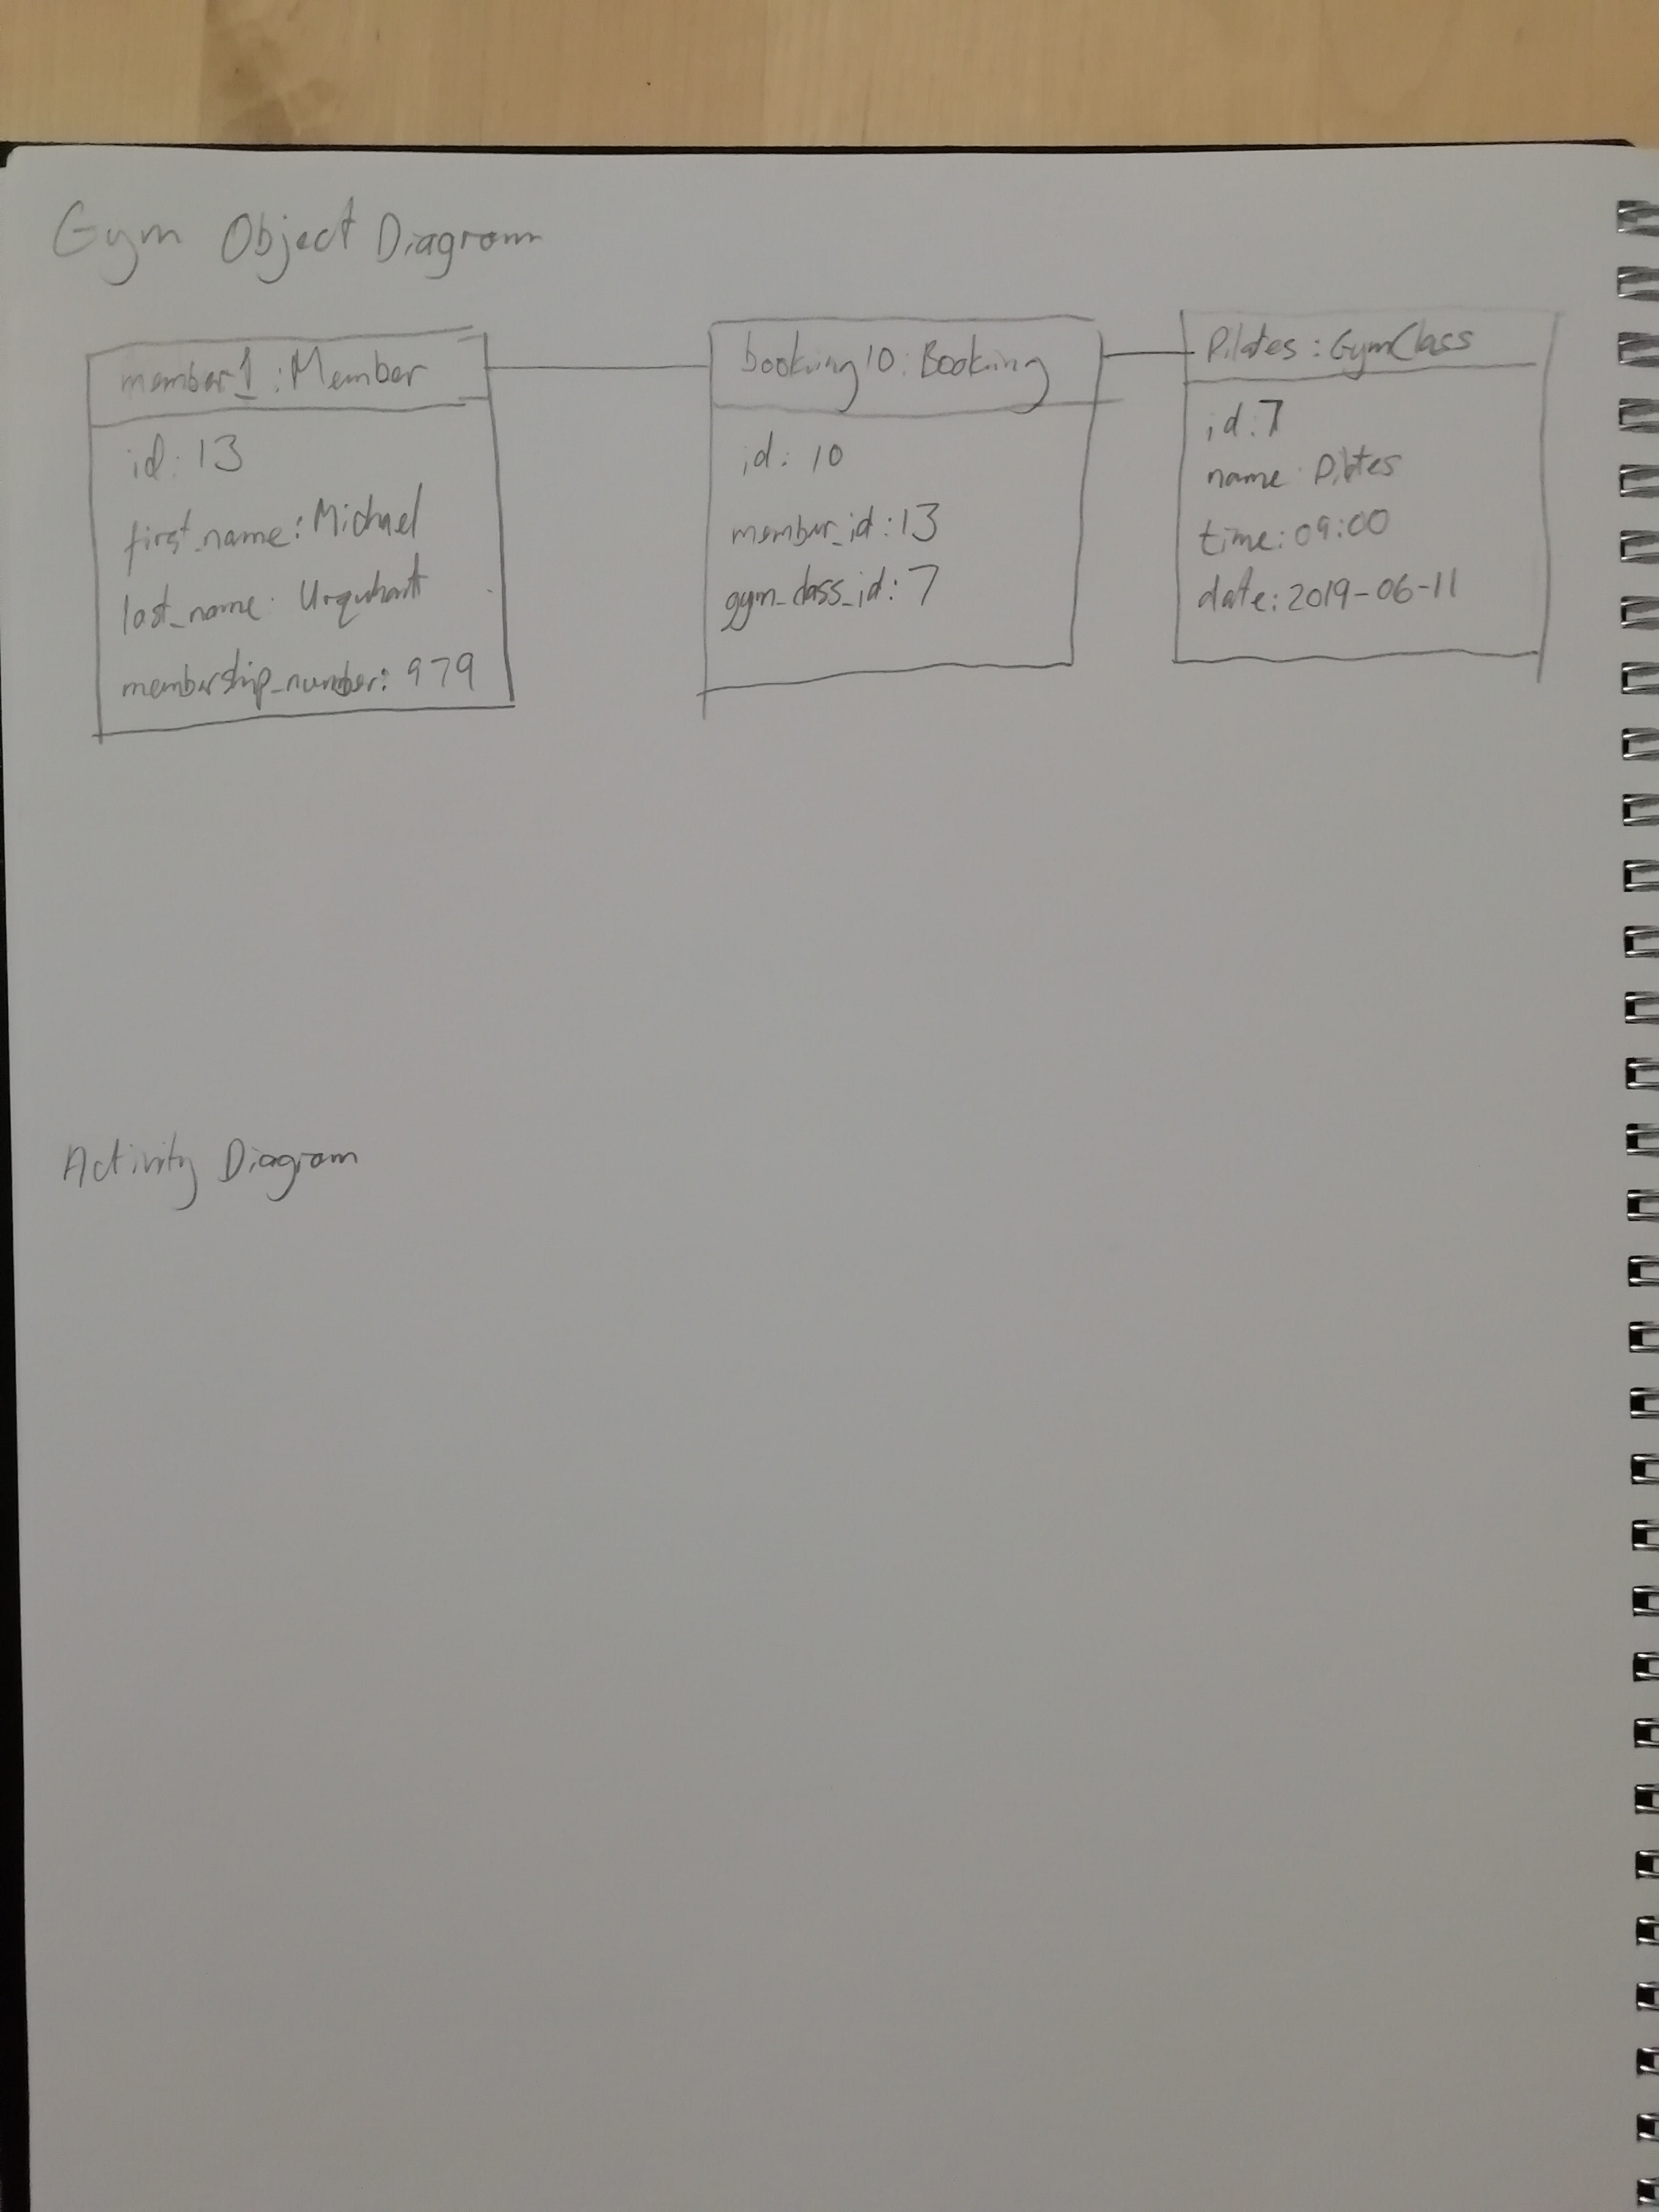 Gym Object Diagram
member1 : Member
id: 13
first_name: Michael
last_name: Urquhart
membership_number: 979
booking10: Booking
id: 10
member_id: 13
gym_class_id: 7
Pilates : GymClass
id: 7
name: Pilates
time: 09:00
date: 2019-06-11
Activity Diagram